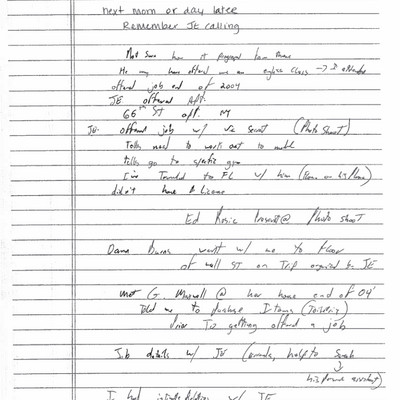 next morn or day later
Remember JE calling
Not Sure how it progressed from there
He may have offered me an english class → I attended
offered job end of 2004
JE offered Apt.
66th ST apt. NY
JE offered job w/ Vic Secret (Photo Shoot)
Tells need to work out to model
tells go to specific gym
I've Traveled to FL w/ him
didn't have a License
Ed Present @ Photo shoot
Dana Burns went w/ me to Floor
of wall ST on Trip organized by JE
Met G. Maxwell @ her home end of 04'
Told me to purchase Items (Toiletries)
Prior To getting offered a job
Job details w/ JE (errands, help to Sarah
↓
his personal assistant)
I had w/ JE